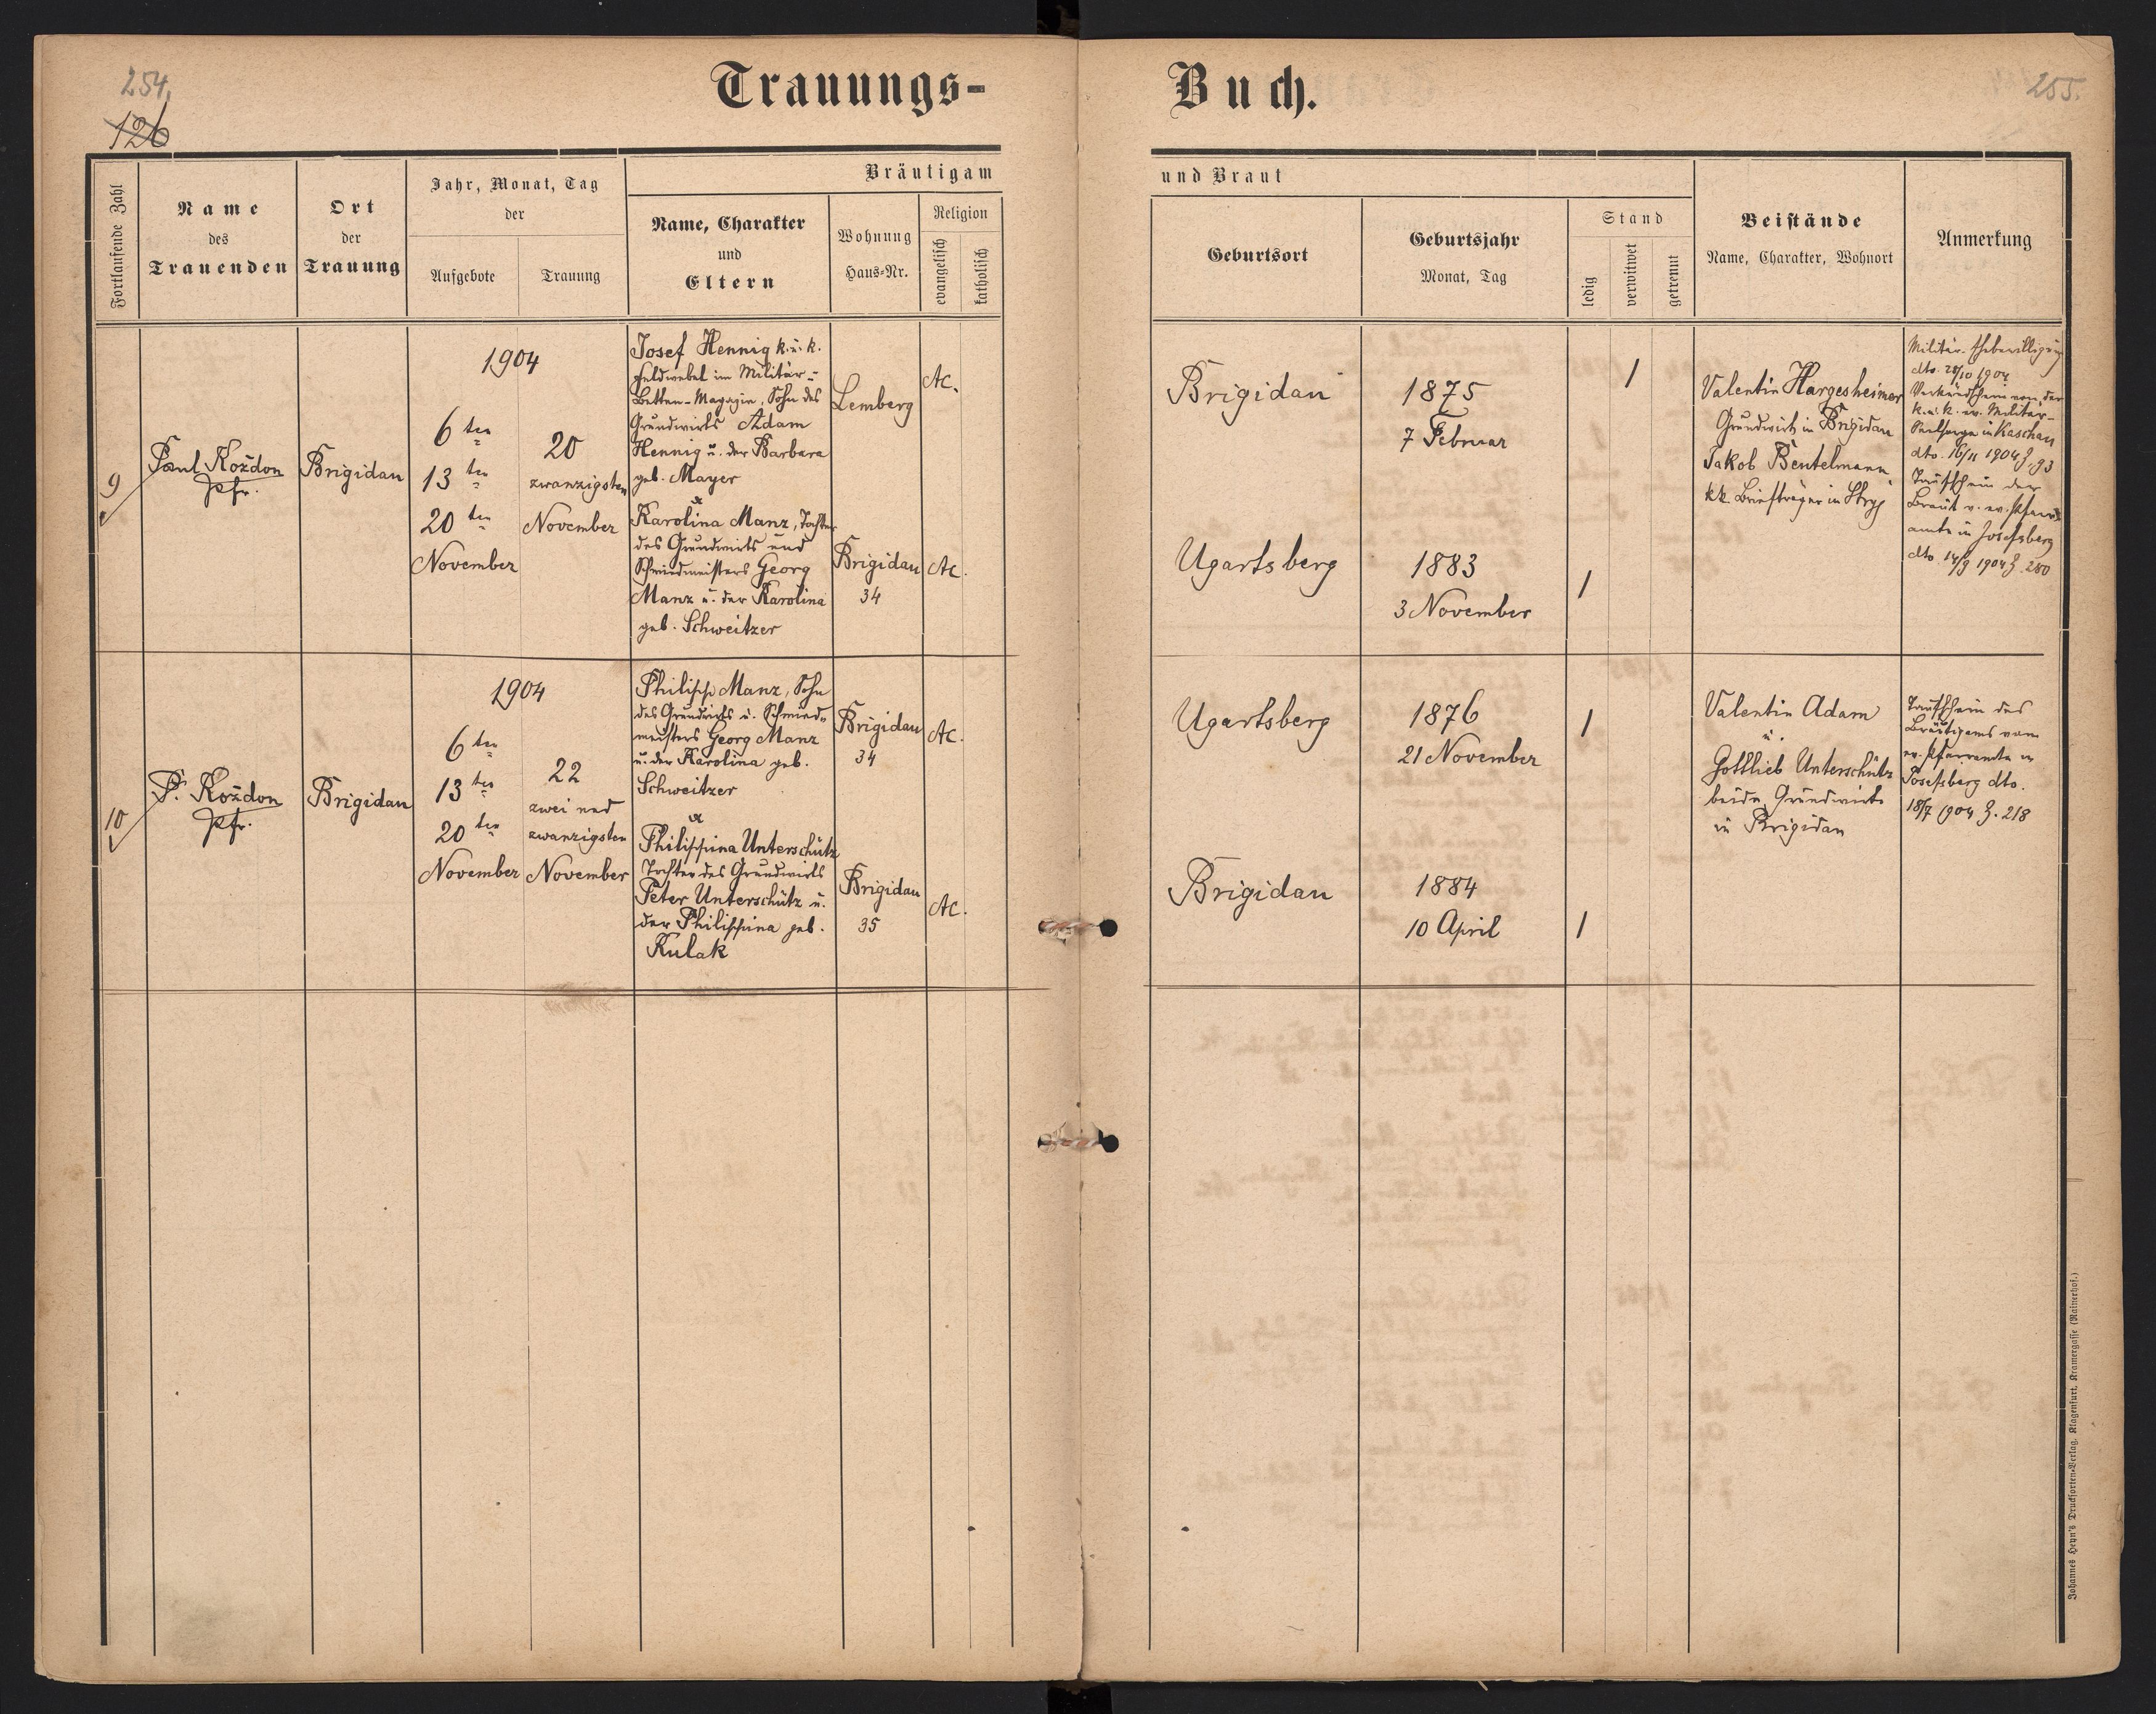 254.
126
Trauungs-
Buch.
255.
Fortlaufende Zahl
Name
des
Trauenden
Ort
der
Trauung
Jahr, Monat, Tag
der
Aufgebote
Trauung
Bräutigam
Name, Charakter
und
Eltern
Wohnung
Haus-Nr.
Religion
evangelisch
katholisch
und Braut
Geburtsort
Geburtsjahr
Monat, Tag
Stand
ledig
verwitwet
getrennt
Beistände
Name, Charakter, Wohnort
Anmerkung
9
Paul Koždon
Pfr.
Brigidau
1904
6ten
13ten
20ten
November
20
zwanzigsten
November
Josef Hennig k. u. k.
Feldwebel im Militär-
Betten-Magazin, Sohn des
Grundwirts Adam
Hennig u. der Barbara
geb. Mayer
&
Karolina Manz, Tochter
des Grundwirts und
Schmiedmeisters Georg
Manz u. der Karolina
geb. Schweitzer
Lemberg
AC.
Brigidau
34
AC.
Brigidau
1875
7 Februar
1
Ugartsberg
1883
3 November
1
Valentin Hargesheimer
Grundwirt in Brigidau
Jakob Bentelmann
kk. Briefträger in Stryj
Militär-Ehebewilligung
dto. 28/10 1904
Verkündschein von der
k. u. k. ev. Militär-
Seelsorge in Kaschau
dto. 16/11 1904 Z. 93
Taufschein der
Braut v. ev. Pfarr-
amte in Josefsberg
dto 14/9 1904 Z. 280
10
P. Koždon
Pfr.
Brigidau
1904
6ten
13ten
20ten
November
22
zwei und
zwanzigsten
November
Philipp Manz, Sohn
des Grundwirts u. Schmied-
meisters Georg Manz
u. der Karolina geb.
Schweitzer
&
Philippina Unterschütz
Tochter des Grundwirts
Peter Unterschütz u.
der Philippina geb.
Kulak
Brigidau
34
AC.
Brigidau
35
AC.
Ugartsberg
1876
21 November
1
Brigidau
1884
10 April
1
Valentin Adam
u.
Gottlieb Unterschütz
beide Grundwirte
in Brigidau
Taufschein des
Bräutigams vom
ev. Pfarramte in
Josefsberg dto.
18/7 1904 Z. 218
Johannes Heyn's Drucksorten-Verlag, Klagenfurt, Kramergasse (Rainerhof.)